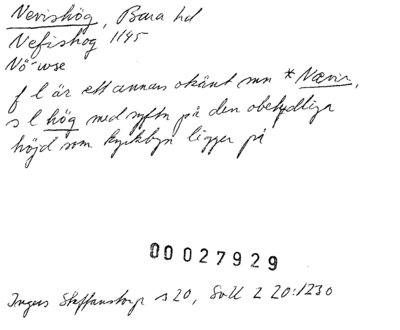 Nevishög, Bara hd
Nefishög 1145
Nö-wse
f l är ett annars okänt mn *Nævir,
s l hög med syftn på den obetydliga
höjd som kyrkbyn ligger på
00027929
Ingers Staffanstorp s 20, SOÄ 2 20:1230